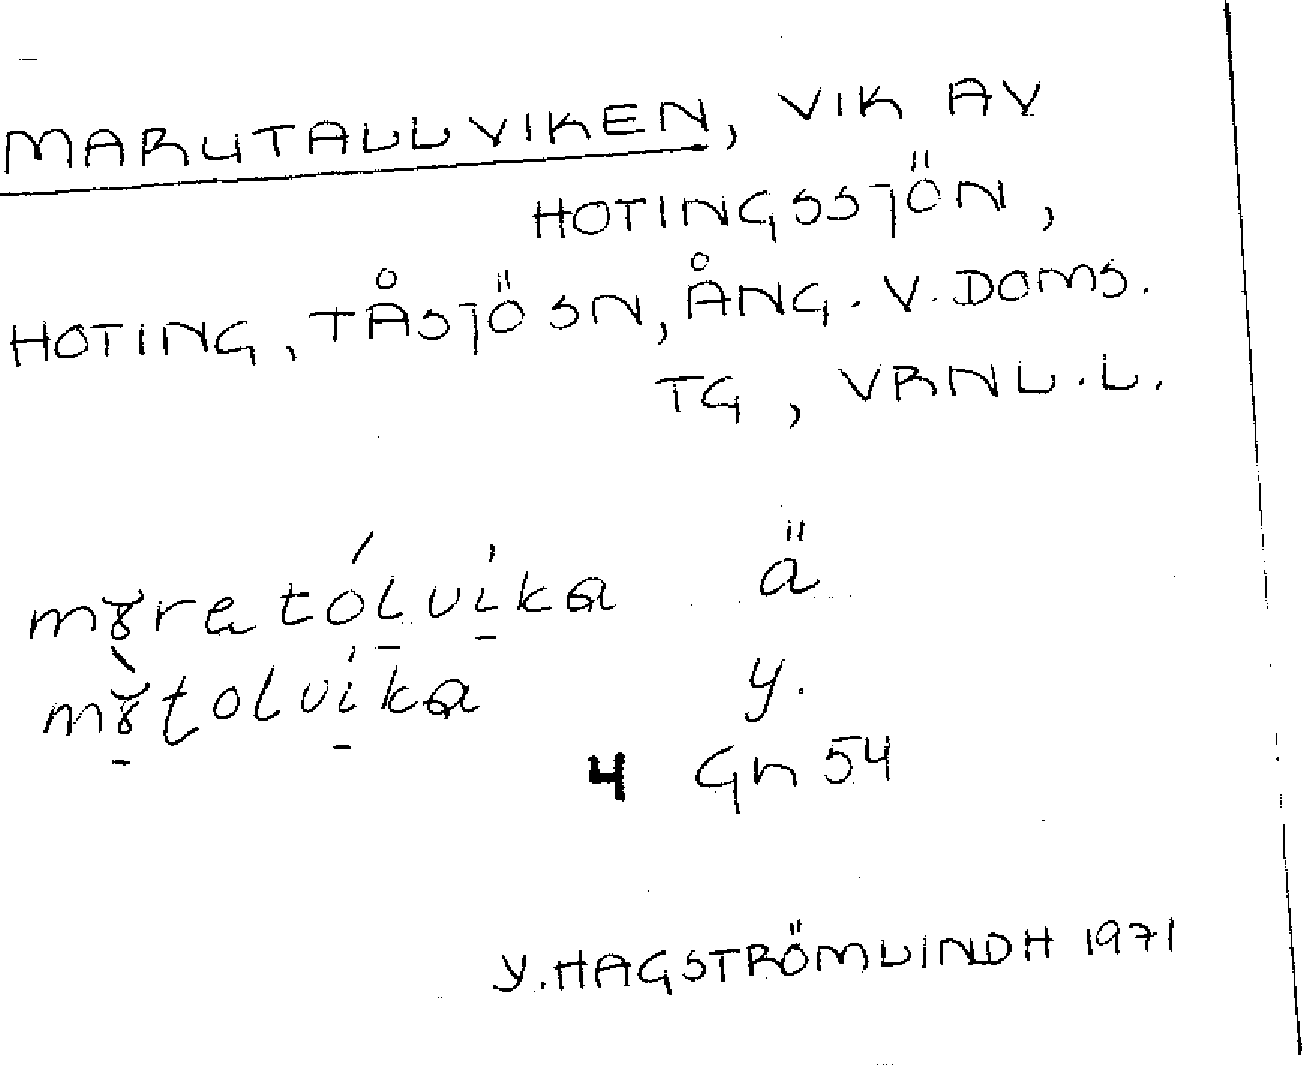 MARUTALLVIKEN, VIK AV
HOTINGSSJÖN,
HOTING, TÅSJÖ SN, ÅNG. V. DOMS.
TG, VRNL. L.
ä
y.
4 Gn 54
Y. HAGSTRÖMLINDH 1971